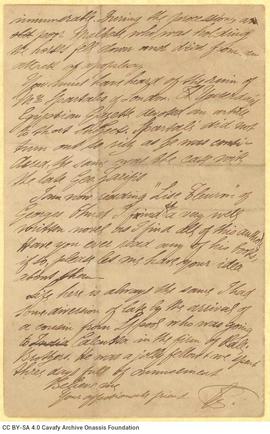 innumerable. During the procession an
old man who was holding
the horses fell down and died from an
attack of apoplexy.
You must have heard of the ruin of
Mr Spartalis of London. Yesterday's
Egyptian Gazette devoted an article
to that subject. Spartali did not
turn out so rich as he was consi-
dered, the same was the case with
the late Geo. Zarifi.
I am now reading "Lise Fleuron" of
Georges Ohnet. I find it a very well
written novel as I find all of this author.
Have you ever read any of his books
if so please let me have your idea
about them.
Life here is always the same. I had
some diversion of late by the arrival of
a cousin from who was going
to Calcutta in the firm of Ralli
Brothers. He was a jolly fellow & we spent
three days full of amusement
Believe me
Your affectionate friend
CC BY-SA 4.0 Cavafy Archive Onassis Foundation